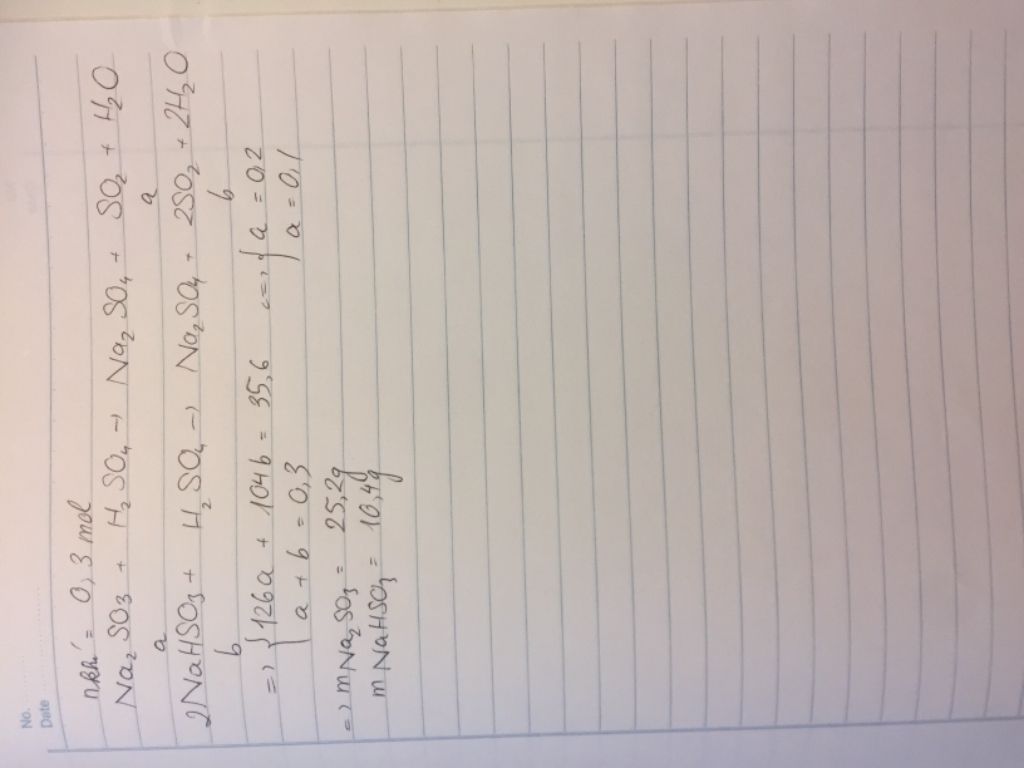 No.
Date
nkhí = 0,3 mol
Na2SO3 + H2SO4 → Na2SO4 + SO2 + H2O
a a
2NaHSO3 + H2SO4 → Na2SO4 + 2SO2 + 2H2O
b b
=> { 126a + 104b = 35,6 <=> { a = 0,2
a + b = 0,3 a = 0,1
=> mNa2SO3 = 25,2g
mNaHSO3 = 10,4g